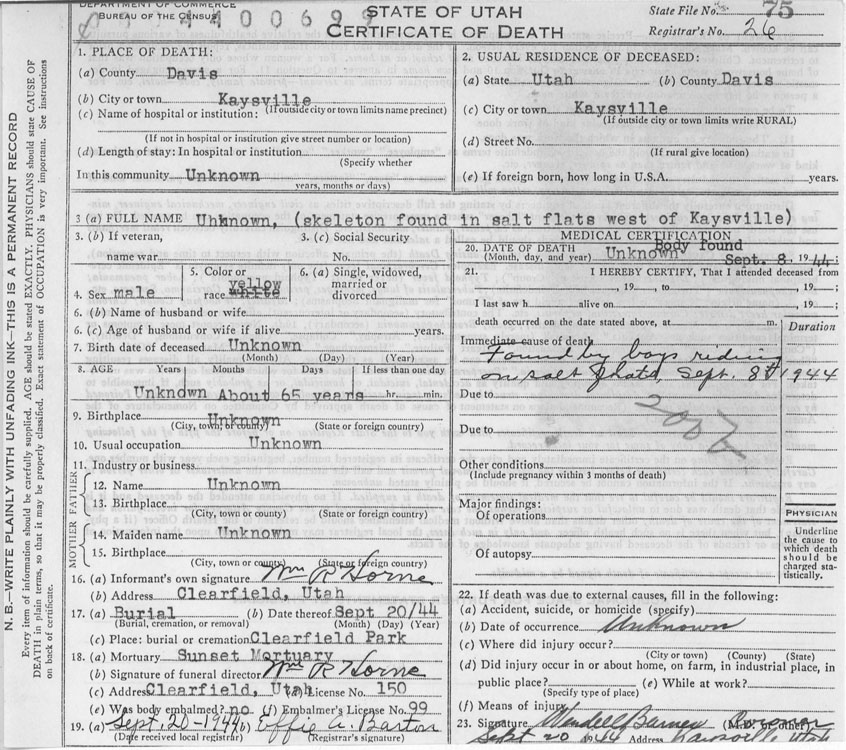 DEPARTMENT OF COMMERCE
BUREAU OF THE CENSUS
4400699
STATE OF UTAH
CERTIFICATE OF DEATH
State File No. 75
Registrar's No. 26
1. PLACE OF DEATH:
(a) County Davis
(b) City or town Kaysville
(If outside city or town limits name precinct)
(c) Name of hospital or institution:
(If not in hospital or institution give street number or location)
(d) Length of stay: In hospital or institution
(Specify whether
In this community Unknown
years, months or days)
2. USUAL RESIDENCE OF DECEASED:
(a) State Utah (b) County Davis
(c) City or town Kaysville
(If outside city or town limits write RURAL)
(d) Street No.
(If rural give location)
(e) If foreign born, how long in U.S.A. years.
3 (a) FULL NAME Unknown, (skeleton found in salt flats west of Kaysville)
3. (b) If veteran,
name war
3. (c) Social Security
No.
4. Sex male
5. Color or
race yellow
white
6. (a) Single, widowed,
married or
divorced
6. (b) Name of husband or wife
6. (c) Age of husband or wife if alive years.
7. Birth date of deceased Unknown
(Month) (Day) (Year)
8. AGE Years Months Days If less than one day
Unknown About 65 years hr. min.
9. Birthplace Unknown
(City, town, or county) (State or foreign country)
10. Usual occupation Unknown
11. Industry or business
FATHER
12. Name Unknown
13. Birthplace
(City, town or county) (State or foreign country)
MOTHER
14. Maiden name Unknown
15. Birthplace
(City, town or county) (State or foreign country)
16. (a) Informant's own signature Wm R Horne
(b) Address Clearfield, Utah
17. (a) Burial (b) Date thereof Sept 20/44
(Burial, cremation, or removal) (Month) (Day) (Year)
(c) Place: burial or cremation Clearfield Park
18. (a) Mortuary Sunset Mortuary
(b) Signature of funeral director Wm R Horne
(c) Address Clearfield, Utah License No. 150
(e) Was body embalmed? no (f) Embalmer's License No. 99
19. (a) Sept. 20-1944 (b) Effie A. Barton
(Date received local registrar) (Registrar's signature)
MEDICAL CERTIFICATION
20. DATE OF DEATH Body found
(Month, day, and year) Unknown Sept. 8, 1944;
21. I HEREBY CERTIFY, That I attended deceased from
, 19 , to , 19 ;
I last saw h alive on , 19 ;
death occurred on the date stated above, at m.
Duration
Immediate cause of death
Found by boys riding
on salt flats, Sept. 8th 1944
Due to
200Z
Due to
Other conditions
(Include pregnancy within 3 months of death)
Major findings:
Of operations
Of autopsy
PHYSICIAN
Underline
the cause to
which death
should be
charged sta-
tistically.
22. If death was due to external causes, fill in the following:
(a) Accident, suicide, or homicide (specify)
(b) Date of occurrence Unknown
(c) Where did injury occur?
(City or town) (County) (State)
(d) Did injury occur in or about home, on farm, in industrial place, in
public place? (e) While at work?
(Specify type of place)
(f) Means of injury
23. Signature Wendell Barnes (M.D. or other)
Sept 20 1944 Address Kaysville Utah
N. B.—WRITE PLAINLY WITH UNFADING INK—THIS IS A PERMANENT RECORD
Every item of information should be carefully supplied. AGE should be stated EXACTLY. PHYSICIANS should state CAUSE OF
DEATH in plain terms, so that it may be properly classified. Exact statement of OCCUPATION is very important. See instructions
on back of certificate.